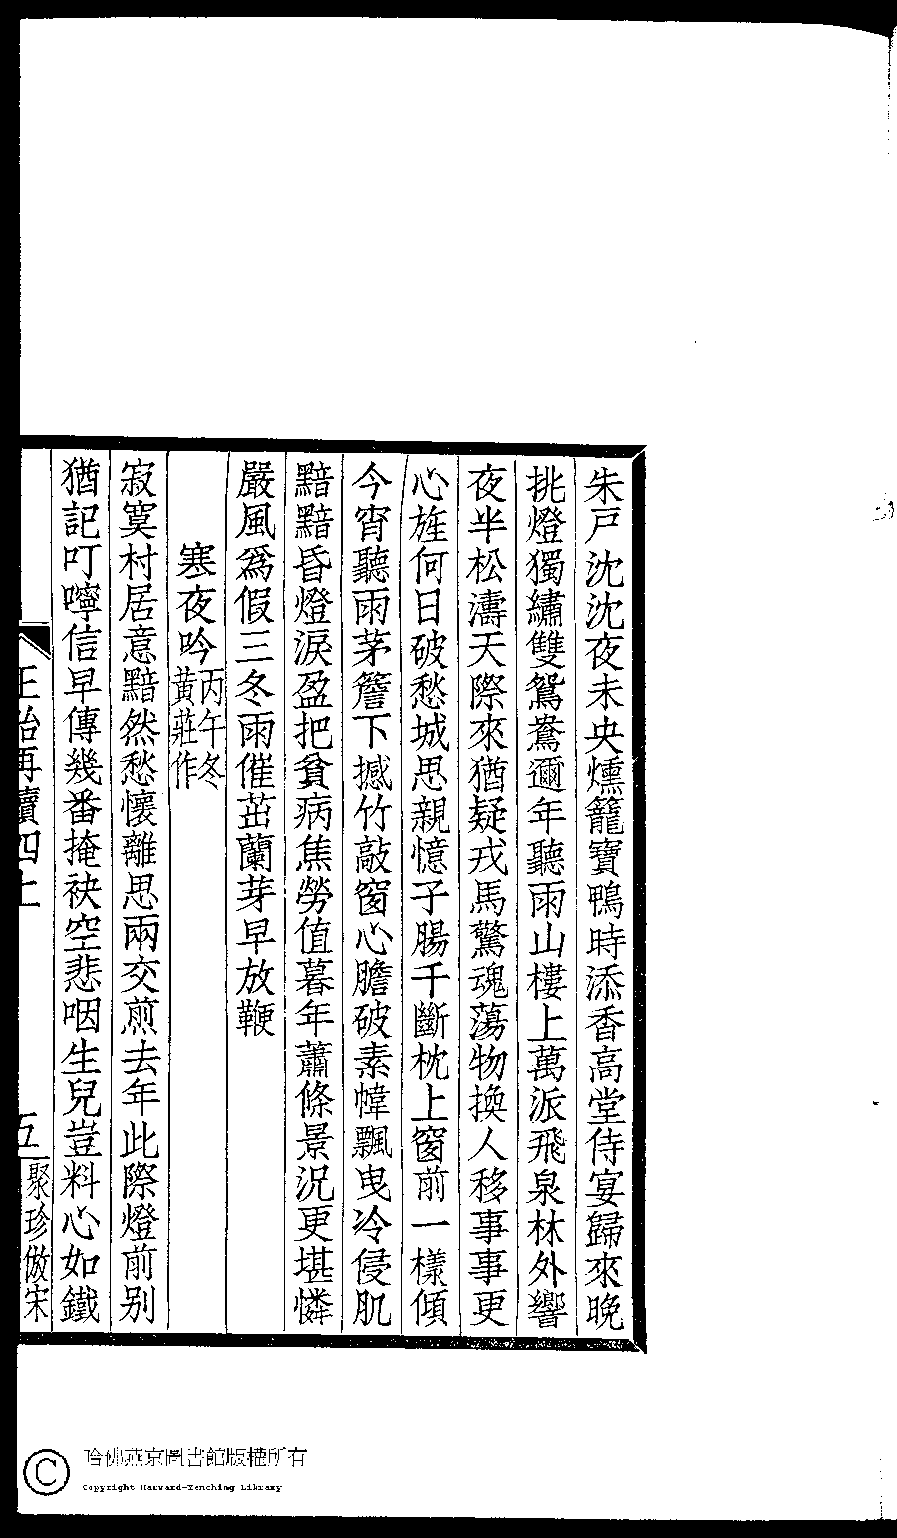 朱戸沈沈夜未央燻籠寶鴨時添香高堂侍宴歸來晚
挑燈獨繡雙鴛鴦邇年聽雨山樓上萬派飛泉林外響
夜半松濤天際來猶疑戎馬驚魂蕩物換人移事事更
心旌何日破愁城思親憶子腸千斷枕上窗前一樣傾
今宵聽雨茅簷下撼竹敲窗心膽破素幃飄曳冷侵肌
黯黯昏燈淚盈把貧病焦勞值暮年蕭條景況更堪憐
嚴風爲假三冬雨催茁蘭芽早放鞭
寒夜吟丙午冬黃莊作
寂寞村居意黯然愁懷離思兩交煎去年此際燈前別
猶記叮嚀信早傳幾番掩袂空悲咽生兒豈料心如鐵
再續四上
五
聚珍倣宋
哈佛燕京圖書館版權所有
Copyright Harvard-Yenching Library